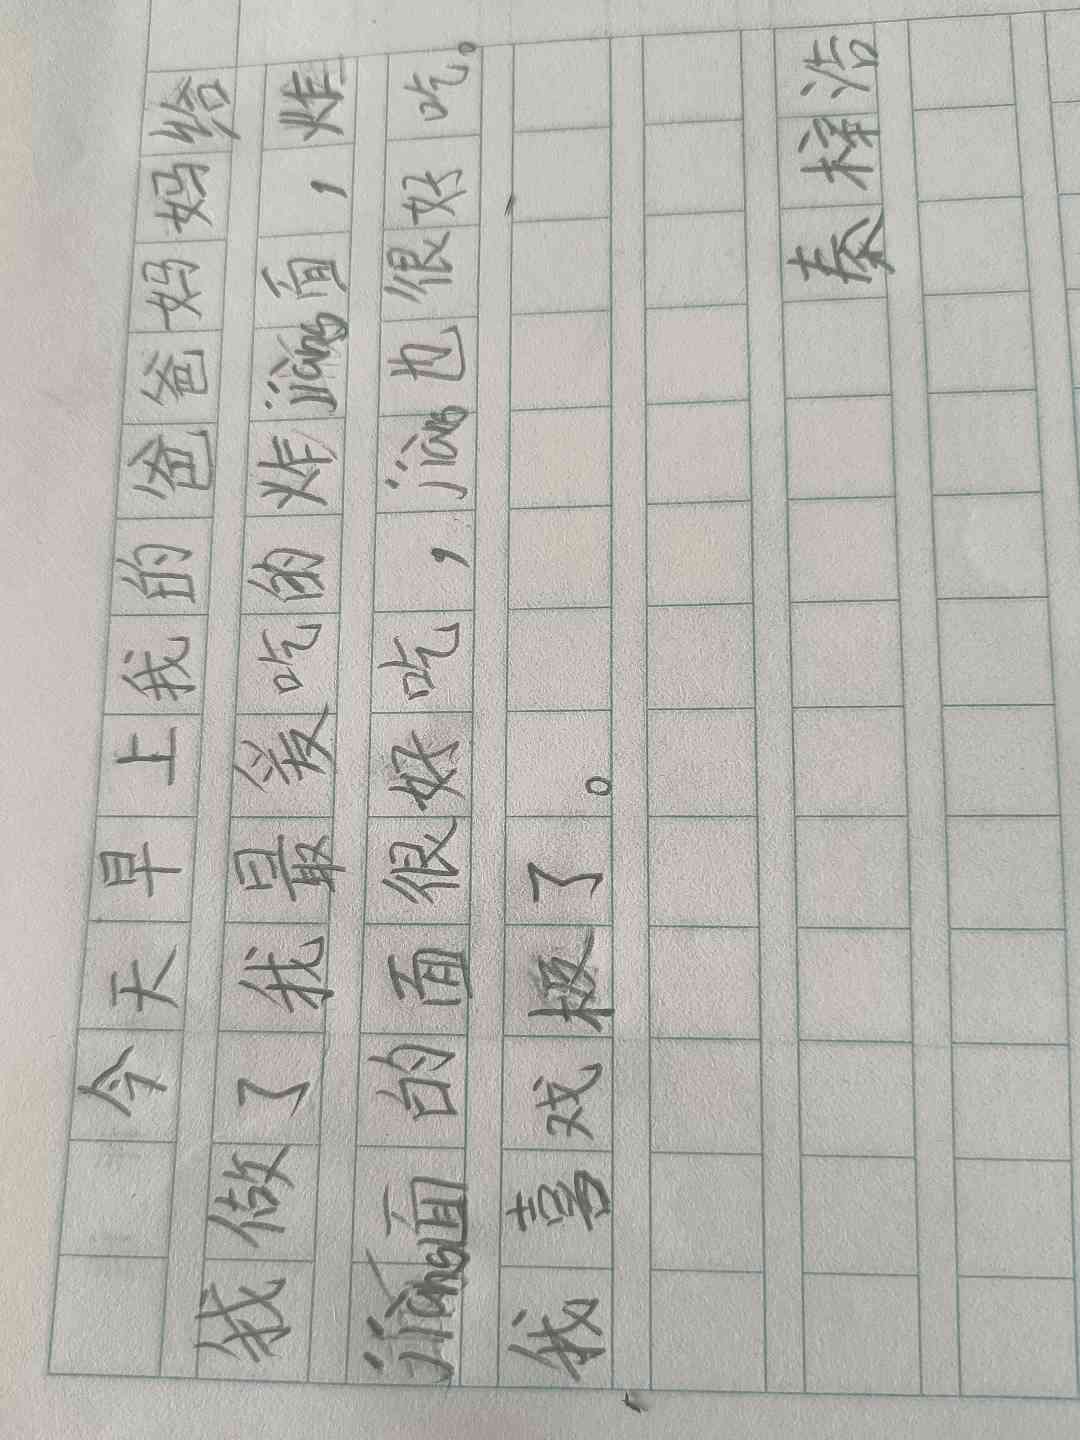 今天早上我的爸爸妈妈给
我做了我最爱吃的炸jiàng面，炸
jiàng面的面很好吃，jiàng也很好吃。
我喜戏极了。
秦梓浩